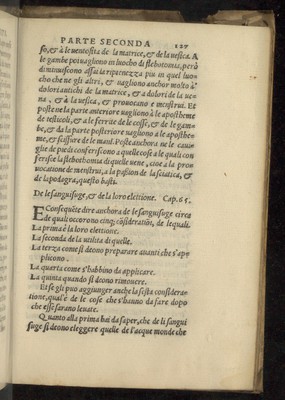 PARTE SECONDA 227
so, & à le ventosita de la matrice, & de la vesica. A
le gambe poi vagliono in luocho di flebotomia, però
diminuiscono assai la ripienezza piu in quel luo-
cho che ne gli altri, & vagliono anchor molto à
dolori antichi de la matrice, & a dolori de la ve-
na, & à la vesica, & provocano e menstrui. Et
poste ne la parte anteriore vagliono à le aposteme
di testicoli, & a le ferite de le cosce, & de le gam-
be, & da la parte posteriore vagliono a le aposthe-
me, & scissure de le nani. Poste anchora ne le cavi-
glie de piedi conferiscono a quelle cose a le quali con
ferisce la flebothomia di quelle vene, cioe a la prov-
vocatione de menstrui, a la passion de la sciatica, &
de la podagra, questo basti.
De le sanguisughe, & de la loro elettione. Cap. 65.
E Consequēte dire anchora de le sanguisuge circa
de quali occorono cinq; cōsiderationi, de le quali.
La prima è la loro elettione.
La seconda de la utilita di quelle.
La terza come si deono preparare avanti che s'ap
plicono.
La quarta come s'habbino da applicare.
La quinta quando si deono rimovere.
Et se gli puo aggiunger anche la sesta consideras-
tione, qual'è de le cose che s'hanno da fare dopo
che esse sarano levate.
Quanto alla prima hai da saper, che di li sangui
suge si deono eleggere quelle de l'acque monde che